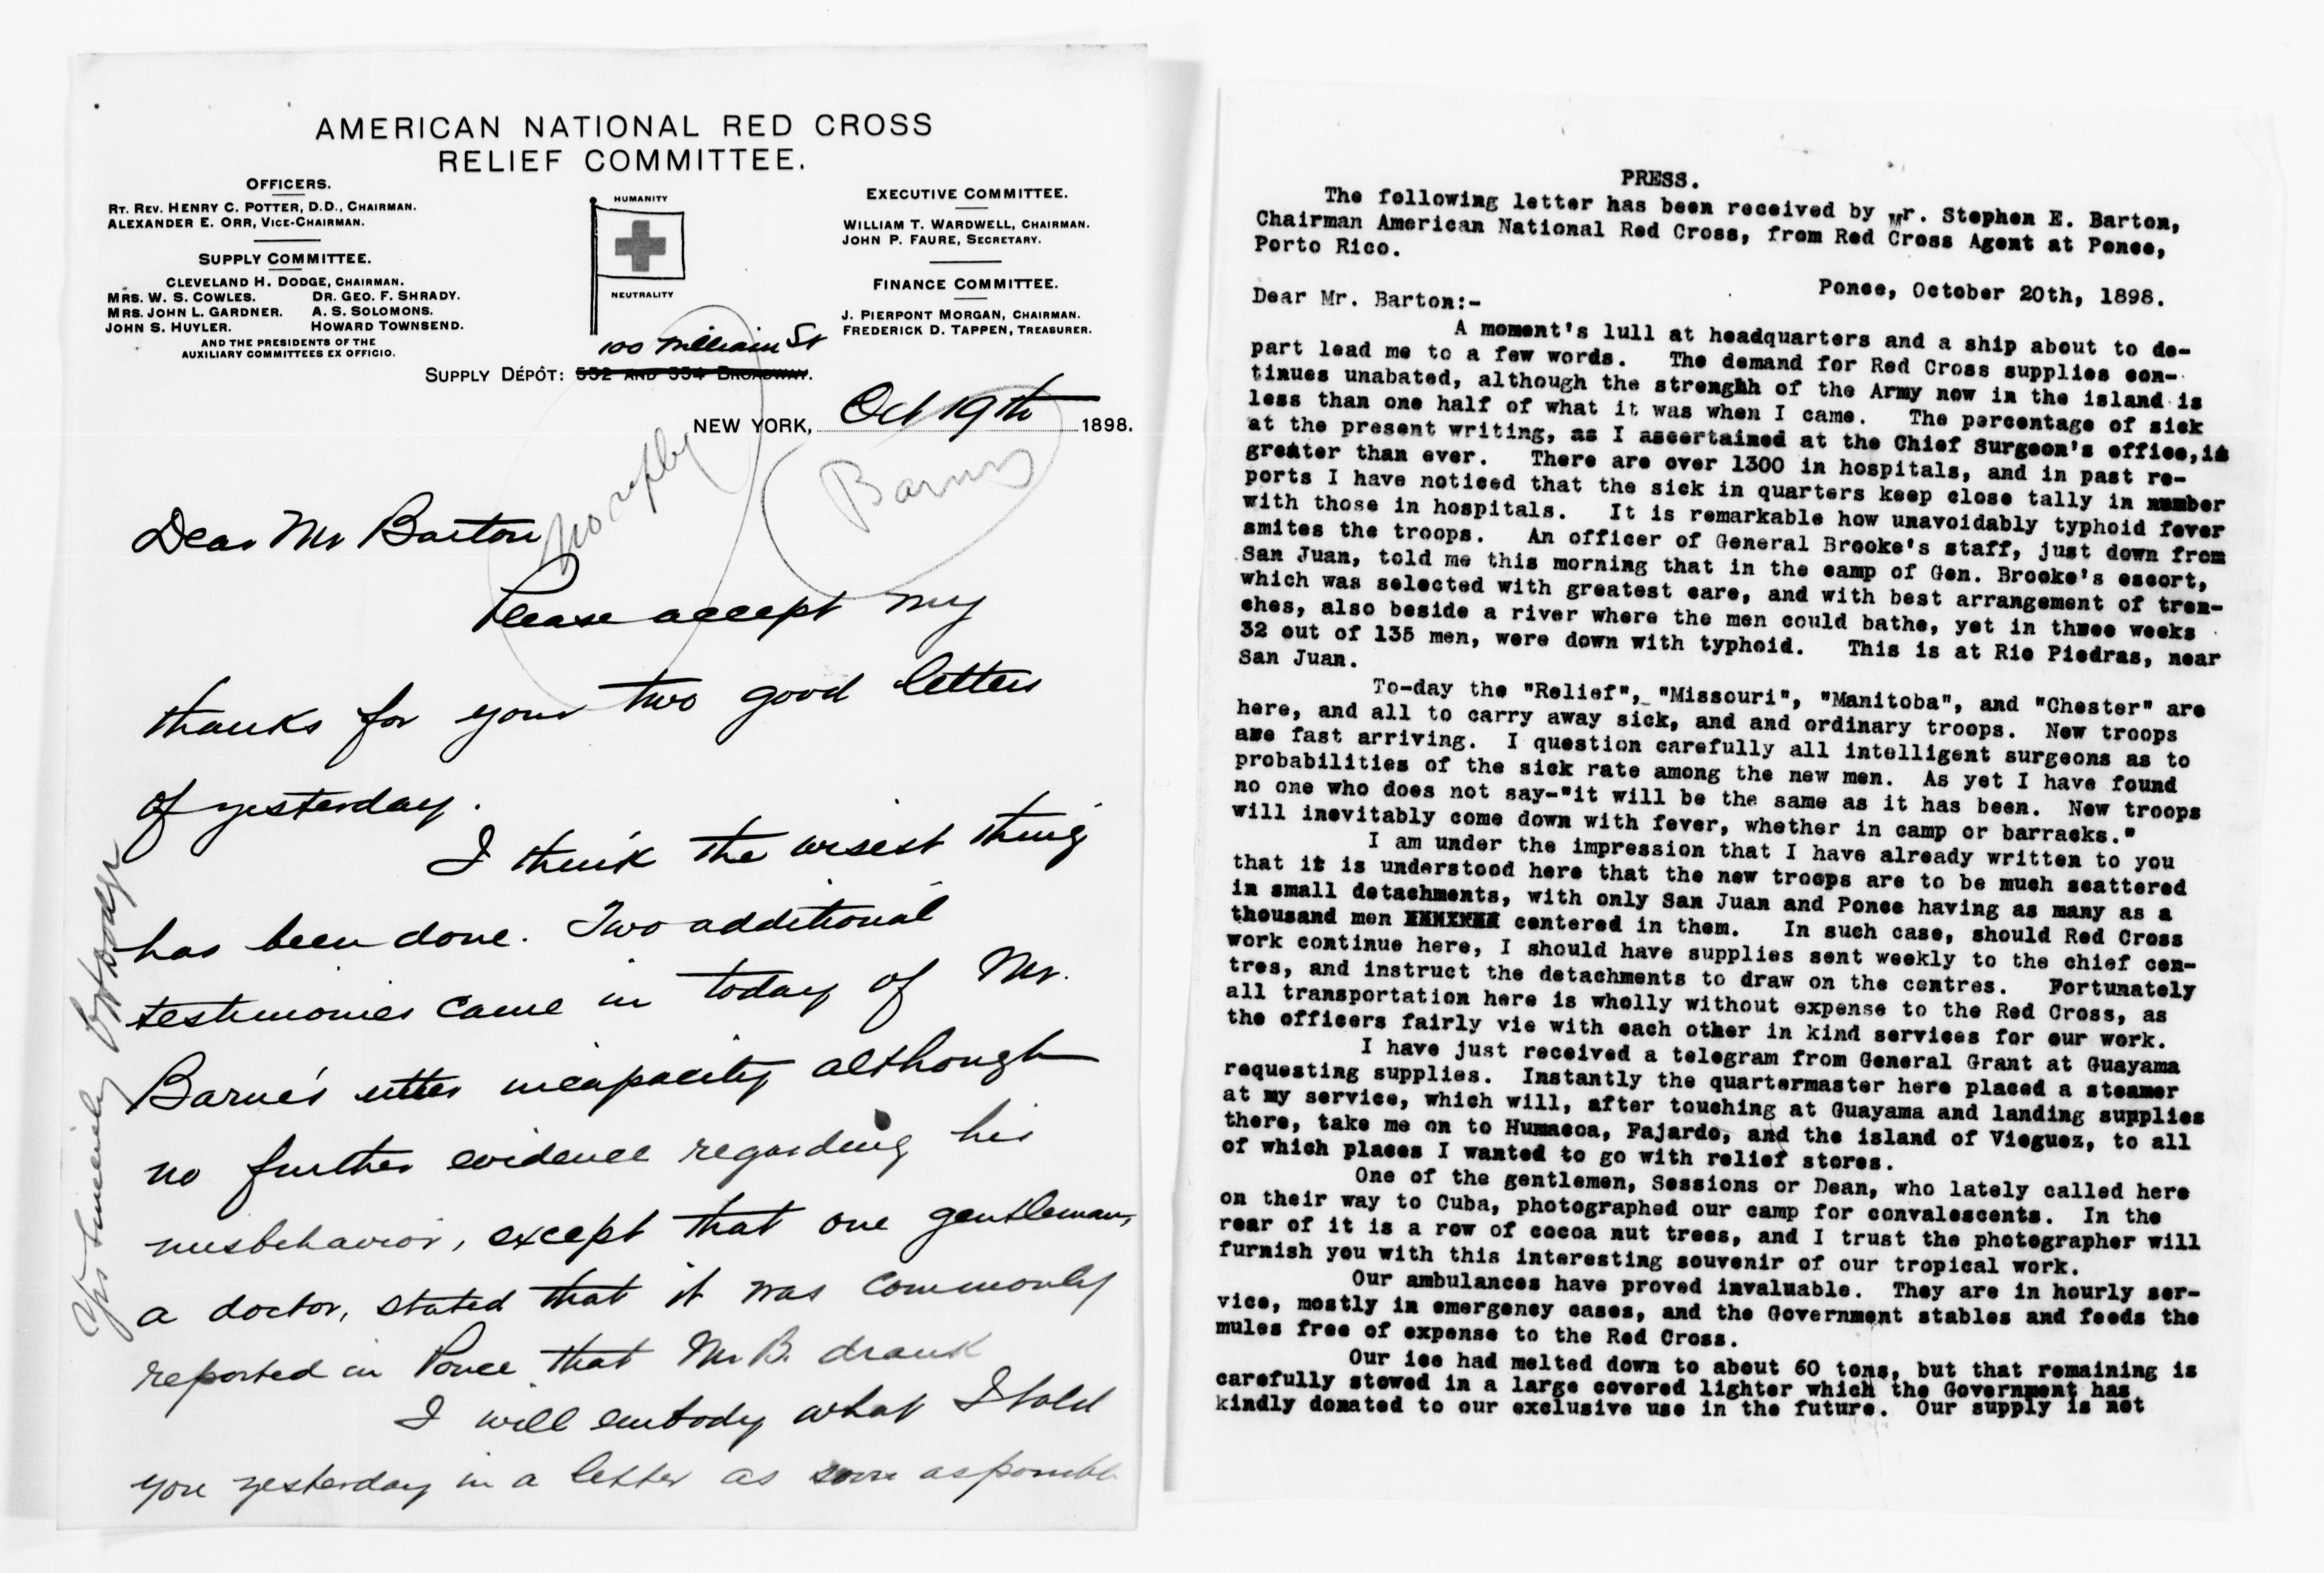 AMERICAN NATIONAL RED CROSS
RELIEF COMMITTEE.
OFFICERS.
RT. REV. HENRY C. POTTER, D.D., CHAIRMAN.
ALEXANDER E. ORR, VICE-CHAIRMAN.
SUPPLY COMMITTEE.
CLEVELAND H. DODGE, CHAIRMAN.
MRS. W. S. COWLES. DR. GEO. F. SHRADY.
MRS. JOHN L. GARDNER. A. S. SOLOMONS.
JOHN S. HUYLER. HOWARD TOWNSEND.
AND THE PRESIDENTS OF THE
AUXILIARY COMMITTEES EX OFFICIO.
HUMANITY
NEUTRALITY
EXECUTIVE COMMITTEE.
WILLIAM T. WARDWELL, CHAIRMAN.
JOHN P. FAURE, SECRETARY.
FINANCE COMMITTEE.
J. PIERPONT MORGAN, CHAIRMAN.
FREDERICK D. TAPPEN, TREASURER.
100 William St
SUPPLY DÉPÔT: 552 AND 554 BROADWAY.
NEW YORK, Oct 19th 1898.
No reply
Barnes
Dear Mr Barton
Please accept my
thanks for your two good letters
of yesterday.
I think the wisest thing
has been done. Two additional
testimonies came in today of Mr.
Barne's utter incapacity although
no further evidence regarding his
misbehavior, except that one gentleman,
a doctor, stated that it was commonly
reported in Ponce that Mr B. drank
I will embody what I told
you yesterday in a letter as soon as possible
Yrs sincerely CHDodge
PRESS.
The following letter has been received by Mr. Stephen E. Barton,
Chairman American National Red Cross, from Red Cross Agent at Ponce,
Porto Rico.
Ponce, October 20th, 1898.
Dear Mr. Barton:-
A moment's lull at headquarters and a ship about to de-
part lead me to a few words. The demand for Red Cross supplies con-
tinues unabated, although the strenghh of the Army now in the island is
less than one half of what it was when I came. The percentage of sick
at the present writing, as I ascertained at the Chief Surgeon's office, is
greater than ever. There are over 1300 in hospitals, and in past re-
ports I have noticed that the sick in quarters keep close tally in number
with those in hospitals. It is remarkable how unavoidably typhoid fever
smites the troops. An officer of General Brooke's staff, just down from
San Juan, told me this morning that in the camp of Gen. Brooke's escort,
which was selected with greatest care, and with best arrangement of tren-
ches, also beside a river where the men could bathe, yet in three weeks
32 out of 135 men, were down with typhoid. This is at Rio Piedras, near
San Juan.
To-day the "Relief", "Missouri", "Manitoba", and "Chester" are
here, and all to carry away sick, and and ordinary troops. New troops
are fast arriving. I question carefully all intelligent surgeons as to
probabilities of the sick rate among the new men. As yet I have found
no one who does not say-"it will be the same as it has been. New troops
will inevitably come down with fever, whether in camp or barracks."
I am under the impression that I have already written to you
that it is understood here that the new troops are to be much scattered
in small detachments, with only San Juan and Ponce having as many as a
thousand men centered in them. In such case, should Red Cross
work continue here, I should have supplies sent weekly to the chief cen-
tres, and instruct the detachments to draw on the centres. Fortunately
all transportation here is wholly without expense to the Red Cross, as
the officers fairly vie with each other in kind services for our work.
I have just received a telegram from General Grant at Guayama
requesting supplies. Instantly the quartermaster here placed a steamer
at my service, which will, after touching at Guayama and landing supplies
there, take me on to Humacoa, Fajardo, and the island of Vieguez, to all
of which places I wanted to go with relief stores.
One of the gentlemen, Sessions or Dean, who lately called here
on their way to Cuba, photographed our camp for convalescents. In the
rear of it is a row of cocoa nut trees, and I trust the photographer will
furnish you with this interesting souvenir of our tropical work.
Our ambulances have proved invaluable. They are in hourly ser-
vice, mostly in emergency cases, and the Government stables and feeds the
mules free of expense to the Red Cross.
Our ice had melted down to about 60 tons, but that remaining is
carefully stowed in a large covered lighter which the Government has
kindly donated to our exclusive use in the future. Our supply is not